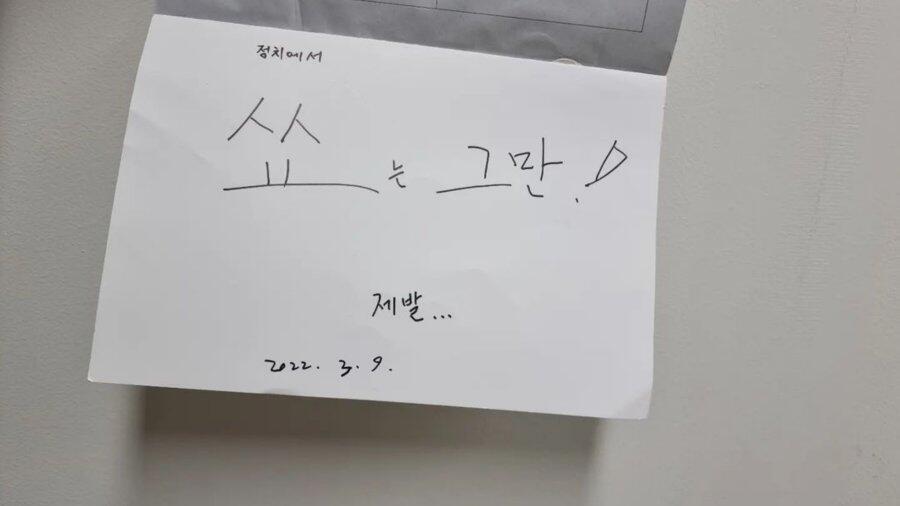 정치에서
쑈는 그만!
제발...
2022. 3. 9.